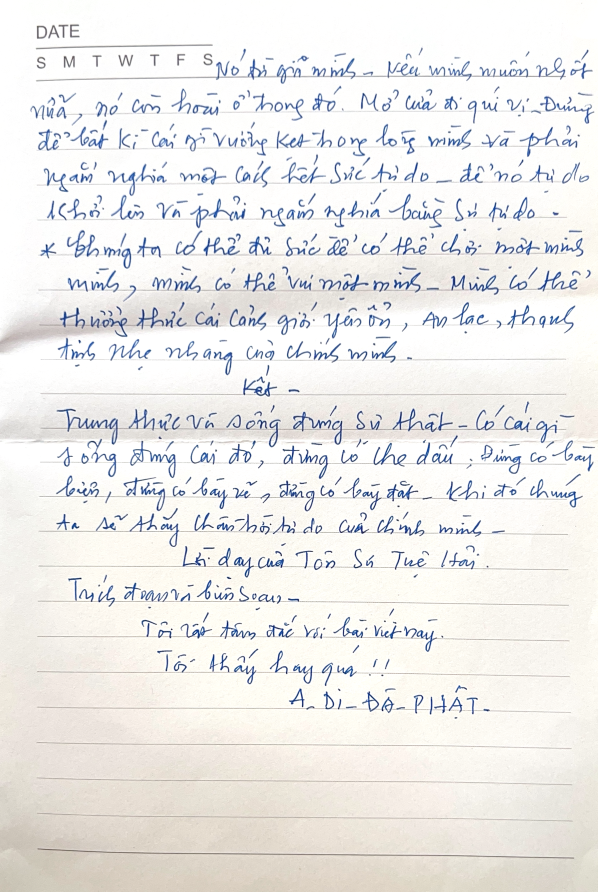 DATE
S M T W T F S
Nó từ giữ mình - Nếu mình muốn nhốt
nữa, nó còn hoài ở trong đó. Mở cửa đi quí vị - Đừng
để bất kì cái gì vướng kẹt trong lòng mình và phải
ngắm nghía một cách hết sức tự do - để nó tự do
khởi lên và phải ngắm nghía bằng sự tự do -
* Chúng ta có thể đủ sức để có thể chơi một mình
mình, mình có thể vui một mình - Mình có thể
thưởng thức cái cảnh giới yên ổn, An lạc, thanh
tịnh nhẹ nhàng của chính mình -
Kết -
Trung thực và sống đúng sự thật - Có cái gì
sống đúng cái đó, đừng có che dấu, Đừng có bày
biện, đừng có bày vẽ, đừng có bày đặt - Khi đó chúng
ta sẽ thấy chân trời tự do của chính mình -
Lời dạy của Tôn Sư Tuệ Hải.
Trích đoạn và biên soạn -
Tôi rất tâm đắc với bài viết này.
Tôi thấy hay quá !!
A - Di - Đà - PHẬT -